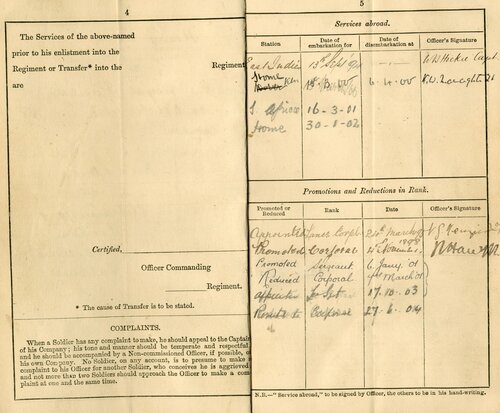 4
The Services of the above-named
prior to his enlistment into the
Regiment
Regiment or Transfer* into the
are
Certified,
Officer Commanding
Regiment.
* The cause of Transfer is to be stated.
COMPLAINTS.
When a Soldier has any complaint to make, he should appeal to the Captain
of his Company; his tone and manner should be temperate and respectful,
and he should be accompanied by a Non-commissioned Officer, if possible, of
his own Company. No Soldier, on any account, is to presume to make a
complaint to his Officer for another Soldier, who conceives he is aggrieved;
and not more than two Soldiers should approach the Officer to make a com-
plaint at one and the same time.
5
Services abroad.
Station Date of embarkation for Date of disembarkation at Officer's Signature
East Indies 13 Sept
Home 6.4.00
S. Africa 16-3-01
Home 30-1-02
Promotions and Reductions in Rank.
Promoted or Reduced Rank Date Officer's Signature
Appointed Lance Corpl March
Promoted Corporal 1898
Promoted Sergeant 6 Jany 01
Reduced Corporal March 01
17.10.03
27.6.04
N.B.—"Service abroad," to be signed by Officer, the others to be in his hand-writing.